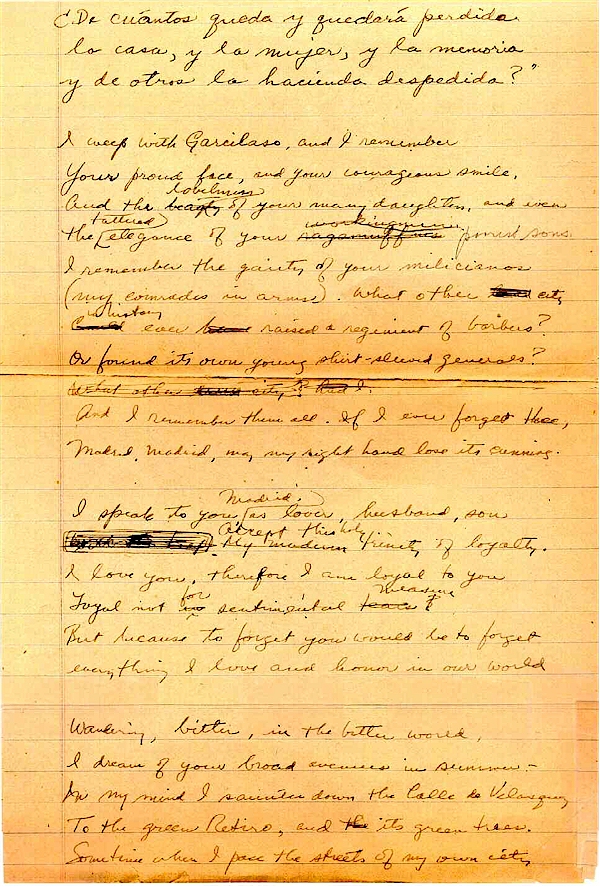 "¿De cuántos queda y quedará perdida
la casa, y la mujer, y la memoria
y de otros la hacienda despedida?"
I weep with Garcilaso, and I remember
Your proud face, and your courageous smile,
loveliness
And the beauty of your many daughters, and even
tattered workingmen
the elegance of your ragamuffin poorest sons.
I remember the gaiety of your milicianos
(my comrades in arms). What other city
in history
ever raised a regiment of barbers?
Or found its own young shirt-sleeved generals?
What other city? And I
And I remember them all. If I ever forget thee,
Madrid, Madrid, may my right hand lose its cunning.
Madrid,
I speak to you, as lover, husband, son
Accept this holy
My modern trinity of loyalty.
I love you, therefore I am loyal to you
for measure
Loyal not in sentimental tears
But because to forget you would be to forget
everything I love and honor in our world
Wandering, bitter, in the bitter world,
I dream of your broad avenues in summer—
In my mind I saunter down the Calle de Velasquez
To the green Retiro, and the its green trees.
Sometime when I pace the streets of my own city